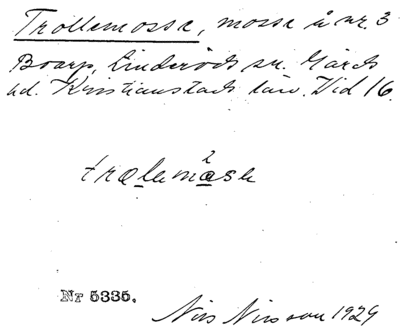 Trollemosse, mosse å nr. 3
Boarp, Linderöds sn. Gärds
hd. Kristianstads län. Vid 16.
2
trolemåse
Nr 5335.
Nils Nilsson 1929